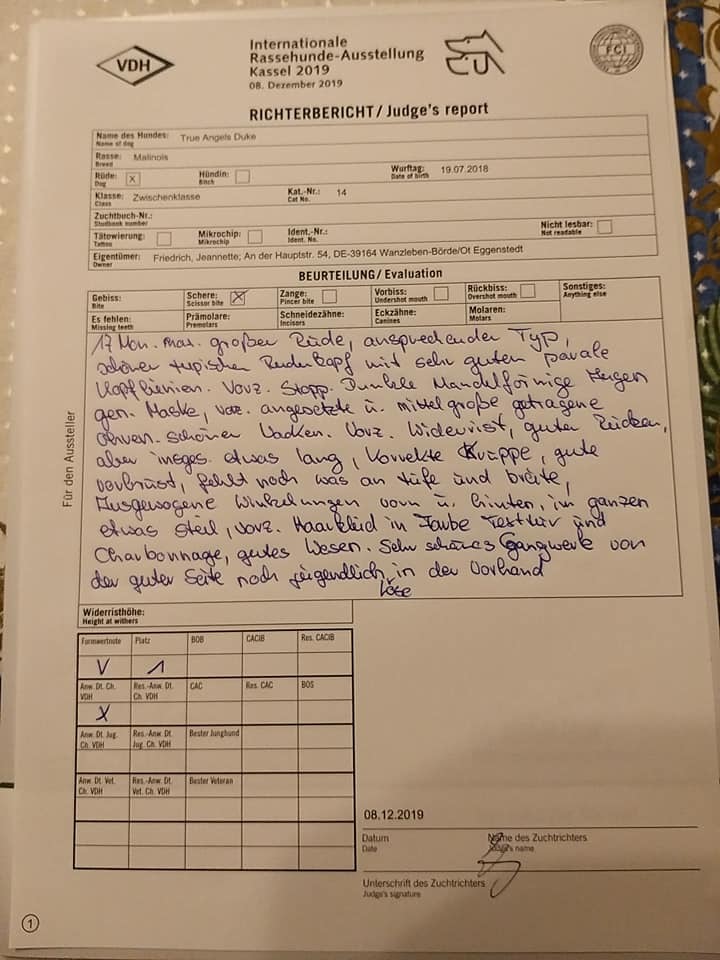 VDH
Internationale
Rassehunde-Ausstellung
Kassel 2019
08. Dezember 2019
FCI
RICHTERBERICHT / Judge's report
Name des Hundes: True Angels Duke
Name of dog
Rasse: Malinois
Breed
Rüde: X Hündin: Wurftag: 19.07.2018
Dog Bitch Date of birth
Klasse: Zwischenklasse Kat.-Nr.: 14
Class Cat No.
Zuchtbuch-Nr.:
Studbook number
Tätowierung: Mikrochip: Ident.-Nr.: Nicht lesbar:
Tattoo Mikrochip Ident. No. Not readable
Eigentümer: Friedrich, Jeannette; An der Hauptstr. 54, DE-39164 Wanzleben-Börde/Ot Eggenstedt
Owner
BEURTEILUNG / Evaluation
Gebiss: Schere: X Zange: Vorbiss: Rückbiss: Sonstiges:
Bite Scissor bite Pincer bite Undershot mouth Overshot mouth Anything else
Es fehlen: Prämolare: Schneidezähne: Eckzähne: Molaren:
Missing teeth Premolars Incisors Canines Molars
17 Mon. großer Rüde, ansprechender Typ,
schöner typischer Rüdenkopf mit sehr guten
Kopflinien. Vorz. Stopp. Dunkle Mandelförmige Augen
gen. Maske, vorz. angesetzte u. mittelgroße getragene
Ohren. schöner Nacken. Vorz. Widerrist, guter Rücken,
aber insges. etwas lang, korrekte Kruppe, gute
Vorbrust, fehlt noch was an Tiefe und breite,
Ausgewogene Winkelungen vorn u. hinten, im ganzen
etwas steil, vorz. Haarkleid in Farbe Textur und
Charbonnage, gutes Wesen. Sehr schönes Gangwerk von
der guter Seite noch jugendlich in der Vorhand
lose
Für den Aussteller
Widerristhöhe:
Height at withers
Formwertnote Platz BOB CACIB Res. CACIB
V 1
Anw. Dt. Ch. VDH Res.-Anw. Dt. Ch. VDH CAC Res. CAC BOS
X
Anw. Dt. Jug. Ch. VDH Res.-Anw. Dt. Jug. Ch. VDH Bester Junghund
Anw. Dt. Vet. Ch. VDH Res.-Anw. Dt. Vet. Ch. VDH Bester Veteran
08.12.2019
Datum Name des Zuchtrichters
Date Judge's name
Unterschrift des Zuchtrichters
Judge's signature
1